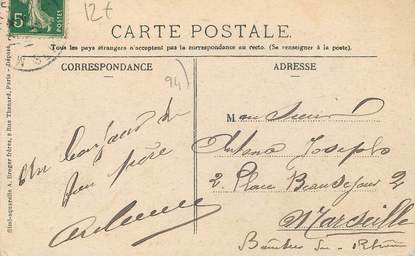 5c
12 f
CARTE POSTALE.
Tous les pays étrangers n'acceptent pas la correspondance au recto. (Se renseigner à la poste).
CORRESPONDANCE
ADRESSE
94)
Un bonjour de
ton frère
Monsieur
Joseph
2. Place Beauséjour 2
Marseille
Bouches du - Rhône
Simi-aquarelle A. Breger frères, 9 Rue Thénard, Paris - Déposé